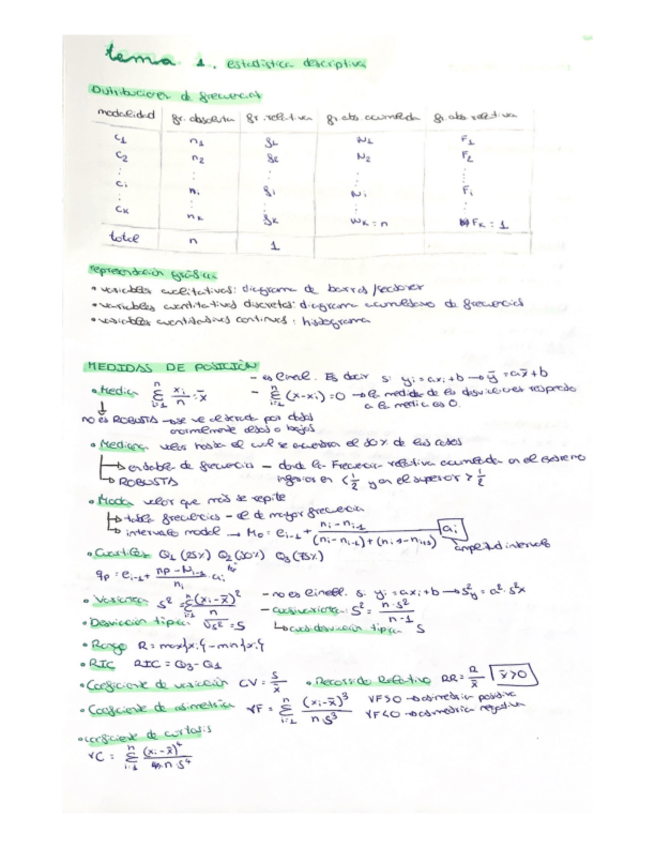 tema 1. estadística descriptiva
Distribuciones de frecuencias
modalidad fr. absoluta fr. relativa fr. abs. acumulada fr. abs. relativa
C1 n1 f1 N1 F1
C2 n2 f2 N2 F2
⋮ ⋮ ⋮ ⋮ ⋮
Ci ni fi Ni Fi
⋮ ⋮ ⋮ ⋮ ⋮
CK nK fK NK = n FK = 1
total n 1
representación gráfica
• variables cualitativas: diagrama de barras /sectores
• variables cuantitativas discretas: diagrama acumulativo de frecuencias
• variables cuantitativas continuas: histograma
MEDIDAS DE POSICIÓN
– es lineal. Es decir si yi = axi + b → ȳ = ax̄ + b
• Media Σ(i=1, n) xi/n = x̄ – Σ(i=1, n) (x-xi) = 0 → la media de las desviaciones respecto
a la media es 0.
no es ROBUSTA → se ve alterada por datos
anormalmente altos o bajos
• Mediana valor hasta el cual se acumulan el 50% de los casos
→ en tabla de frecuencias – donde la Frecuencia relativa acumulada en el extremo
inferior en < 1/2 y en el superior > 1/2
→ ROBUSTA
• Moda valor que más se repite
→ tabla frecuencias – el de mayor frecuencia
→ intervalo modal → Mo = ei-1 + (ni - ni-1)/((ni - ni-1) + (ni - ni+1)) ai
amplitud intervalo
• Cuartiles Q1 (25%) Q2 (50%) Q3 (75%)
qp = ei-1 + (np - Ni-1)/ni ai
• Varianza s² = Σ(i=1, n) (xi - x̄)²/n – no es lineal. si yi = axi + b → s²y = a² · s²x
– cuasivarianza: S² = n·s²/(n-1)
• Desviación típica √s² = s → cuasidesviación típica S
• Rango R = max{xi} - min{xi}
• RIC RIC = Q3 - Q1
• Coeficiente de variación CV = s/x̄ • Recorrido Relativo RR = R/x̄ x̄>0
• Coeficiente de asimetría γF = Σ(i=1, n) (xi - x̄)³/(n s³) γF>0 → asimetría positiva
γF<0 → asimetría negativa
• coeficiente de curtosis
γC = Σ(i=1, n) (xi - x̄)⁴/(n s⁴)